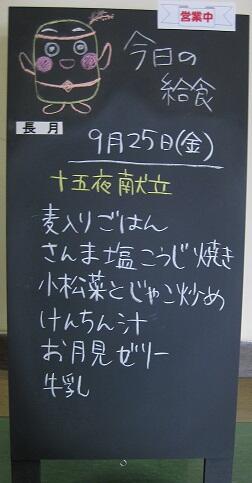 営業中
今日の
給食
長月
9月25日(金)
十五夜献立
麦入りごはん
さんま塩こうじ焼き
小松菜とじゃこ炒め
けんちん汁
お月見ゼリー
牛乳